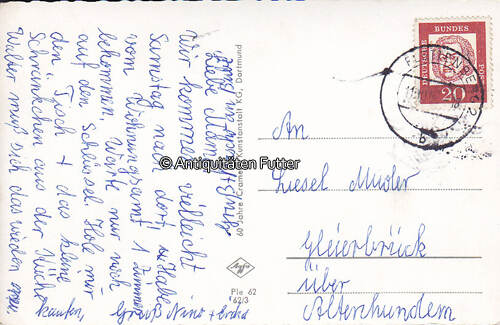 Liebe Mama
Wir kommen vielleicht
Samstag nach dort. Habe
vom Wohnungsamt 1 Zimmer
bekommen. Warte nur noch
auf den Schlüssel. Hole mir
den Tisch + das kleine
Schränkchen aus der Küche
Waber muß sich das wieder
kaufen,
Gruß Nino + Erika
60 Jahre Cramers Kunstanstalt KG, Dortmund
Agfa
Ple 62
62/3
© Antiquitäten Futter
DEUTSCHE
BUNDES
POST
20
b
An
Liesel Müdler
Gleierbrück
über
Altenhundem